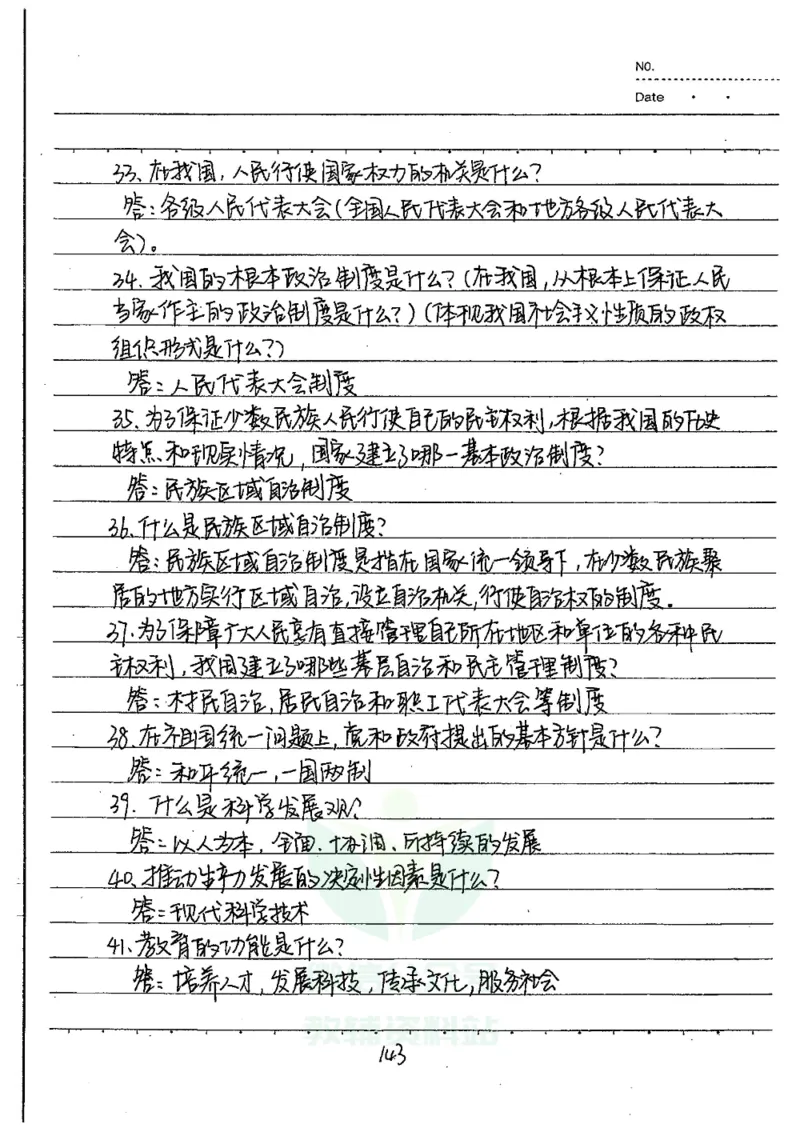 NO.
Date
33、在我国，人民行使国家权力的机关是什么？
答：各级人民代表大会（全国人民代表大会和地方各级人民代表大
会）。
34、我国的根本政治制度是什么？（在我国，从根本上保证人民
当家作主的政治制度是什么？）（体现我国社会主义性质的政权
组织形式是什么？）
答：人民代表大会制度
35、为了保证少数民族人民行使自己的民主权利，根据我国的历史
特点和现实情况，国家建立了哪一基本政治制度？
答：民族区域自治制度
36、什么是民族区域自治制度？
答：民族区域自治制度是指在国家统一领导下，在少数民族聚
居的地方实行区域自治，设立自治机关，行使自治权的制度。
37、为了保障广大人民享有直接管理自己所在地区和单位的各种民
主权利，我国建立了哪些基层自治和民主管理制度？
答：村民自治，居民自治和职工代表大会等制度
38、在祖国统一问题上，党和政府提出的基本方针是什么？
答：和平统一，一国两制
39、什么是科学发展观？
答：以人为本，全面、协调、可持续的发展
40、推动生产力发展的决定性因素是什么？
答：现代科学技术
41、教育的功能是什么？
答：培养人才，发展科技，传承文化，服务社会
教辅资料站
143